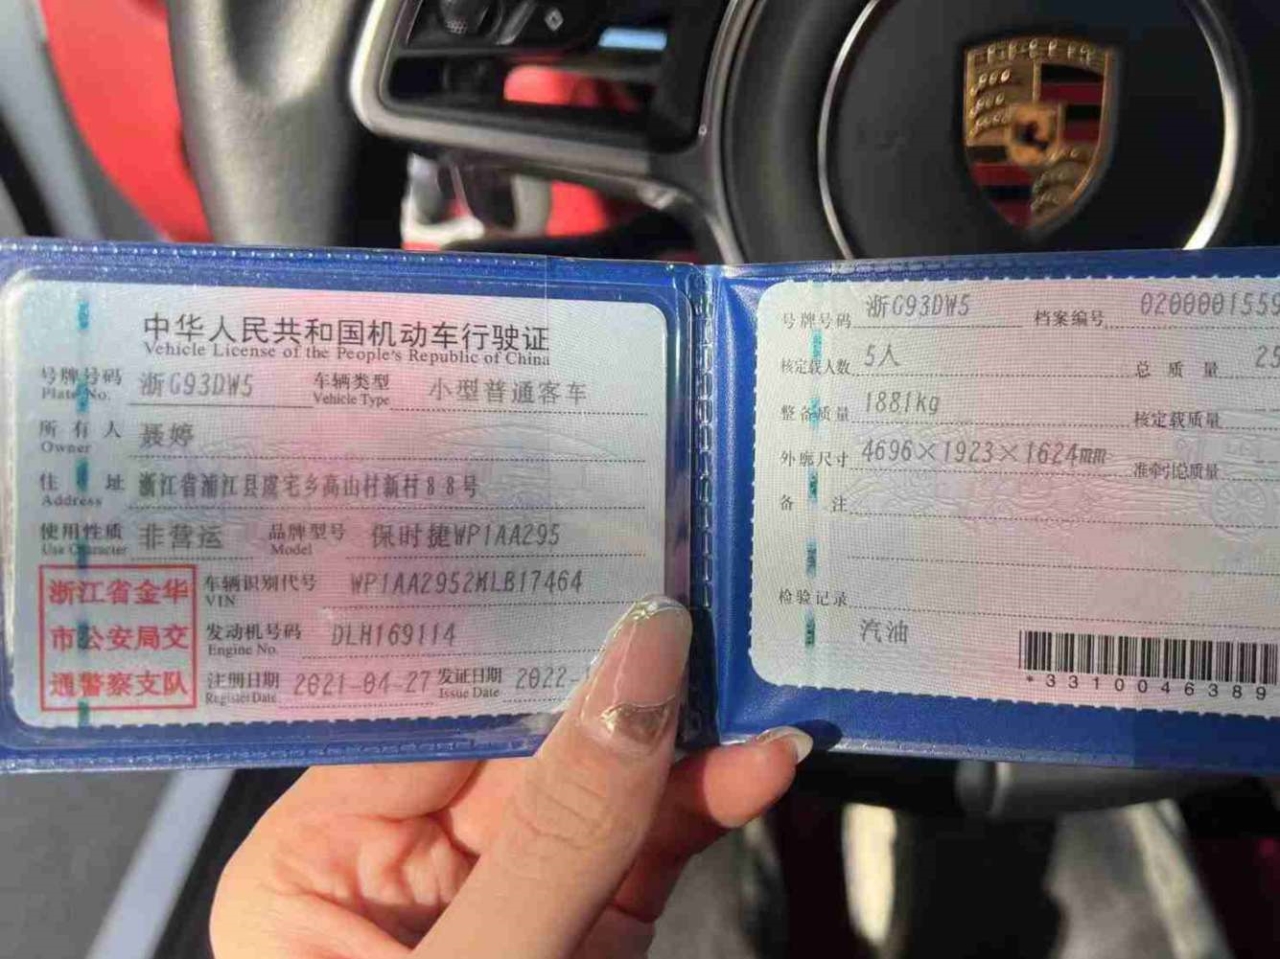 中华人民共和国机动车行驶证
Vehicle License of the People's Republic of China
号牌号码 浙G93DW5 车辆类型 小型普通客车
Plate No. Vehicle Type
所有人 聂婷
Owner
住址 浙江省浦江县虞宅乡高山村新村88号
Address
使用性质 非营运 品牌型号 保时捷WP1AA295
Use Character Model
浙江省金华
市公安局交
通警察支队
车辆识别代号 WP1AA2952MLB17464
VIN
发动机号码 DLH169114
Engine No.
注册日期 2021-04-27 发证日期 2022-
Register Date Issue Date
号牌号码 浙G93DW5 档案编号 0200001559
核定载人数 5人 总质量 25
整备质量 1881kg 核定载质量
外廓尺寸 4696×1923×1624mm 准牵引总质量
备注
检验记录
汽油
*3310046389